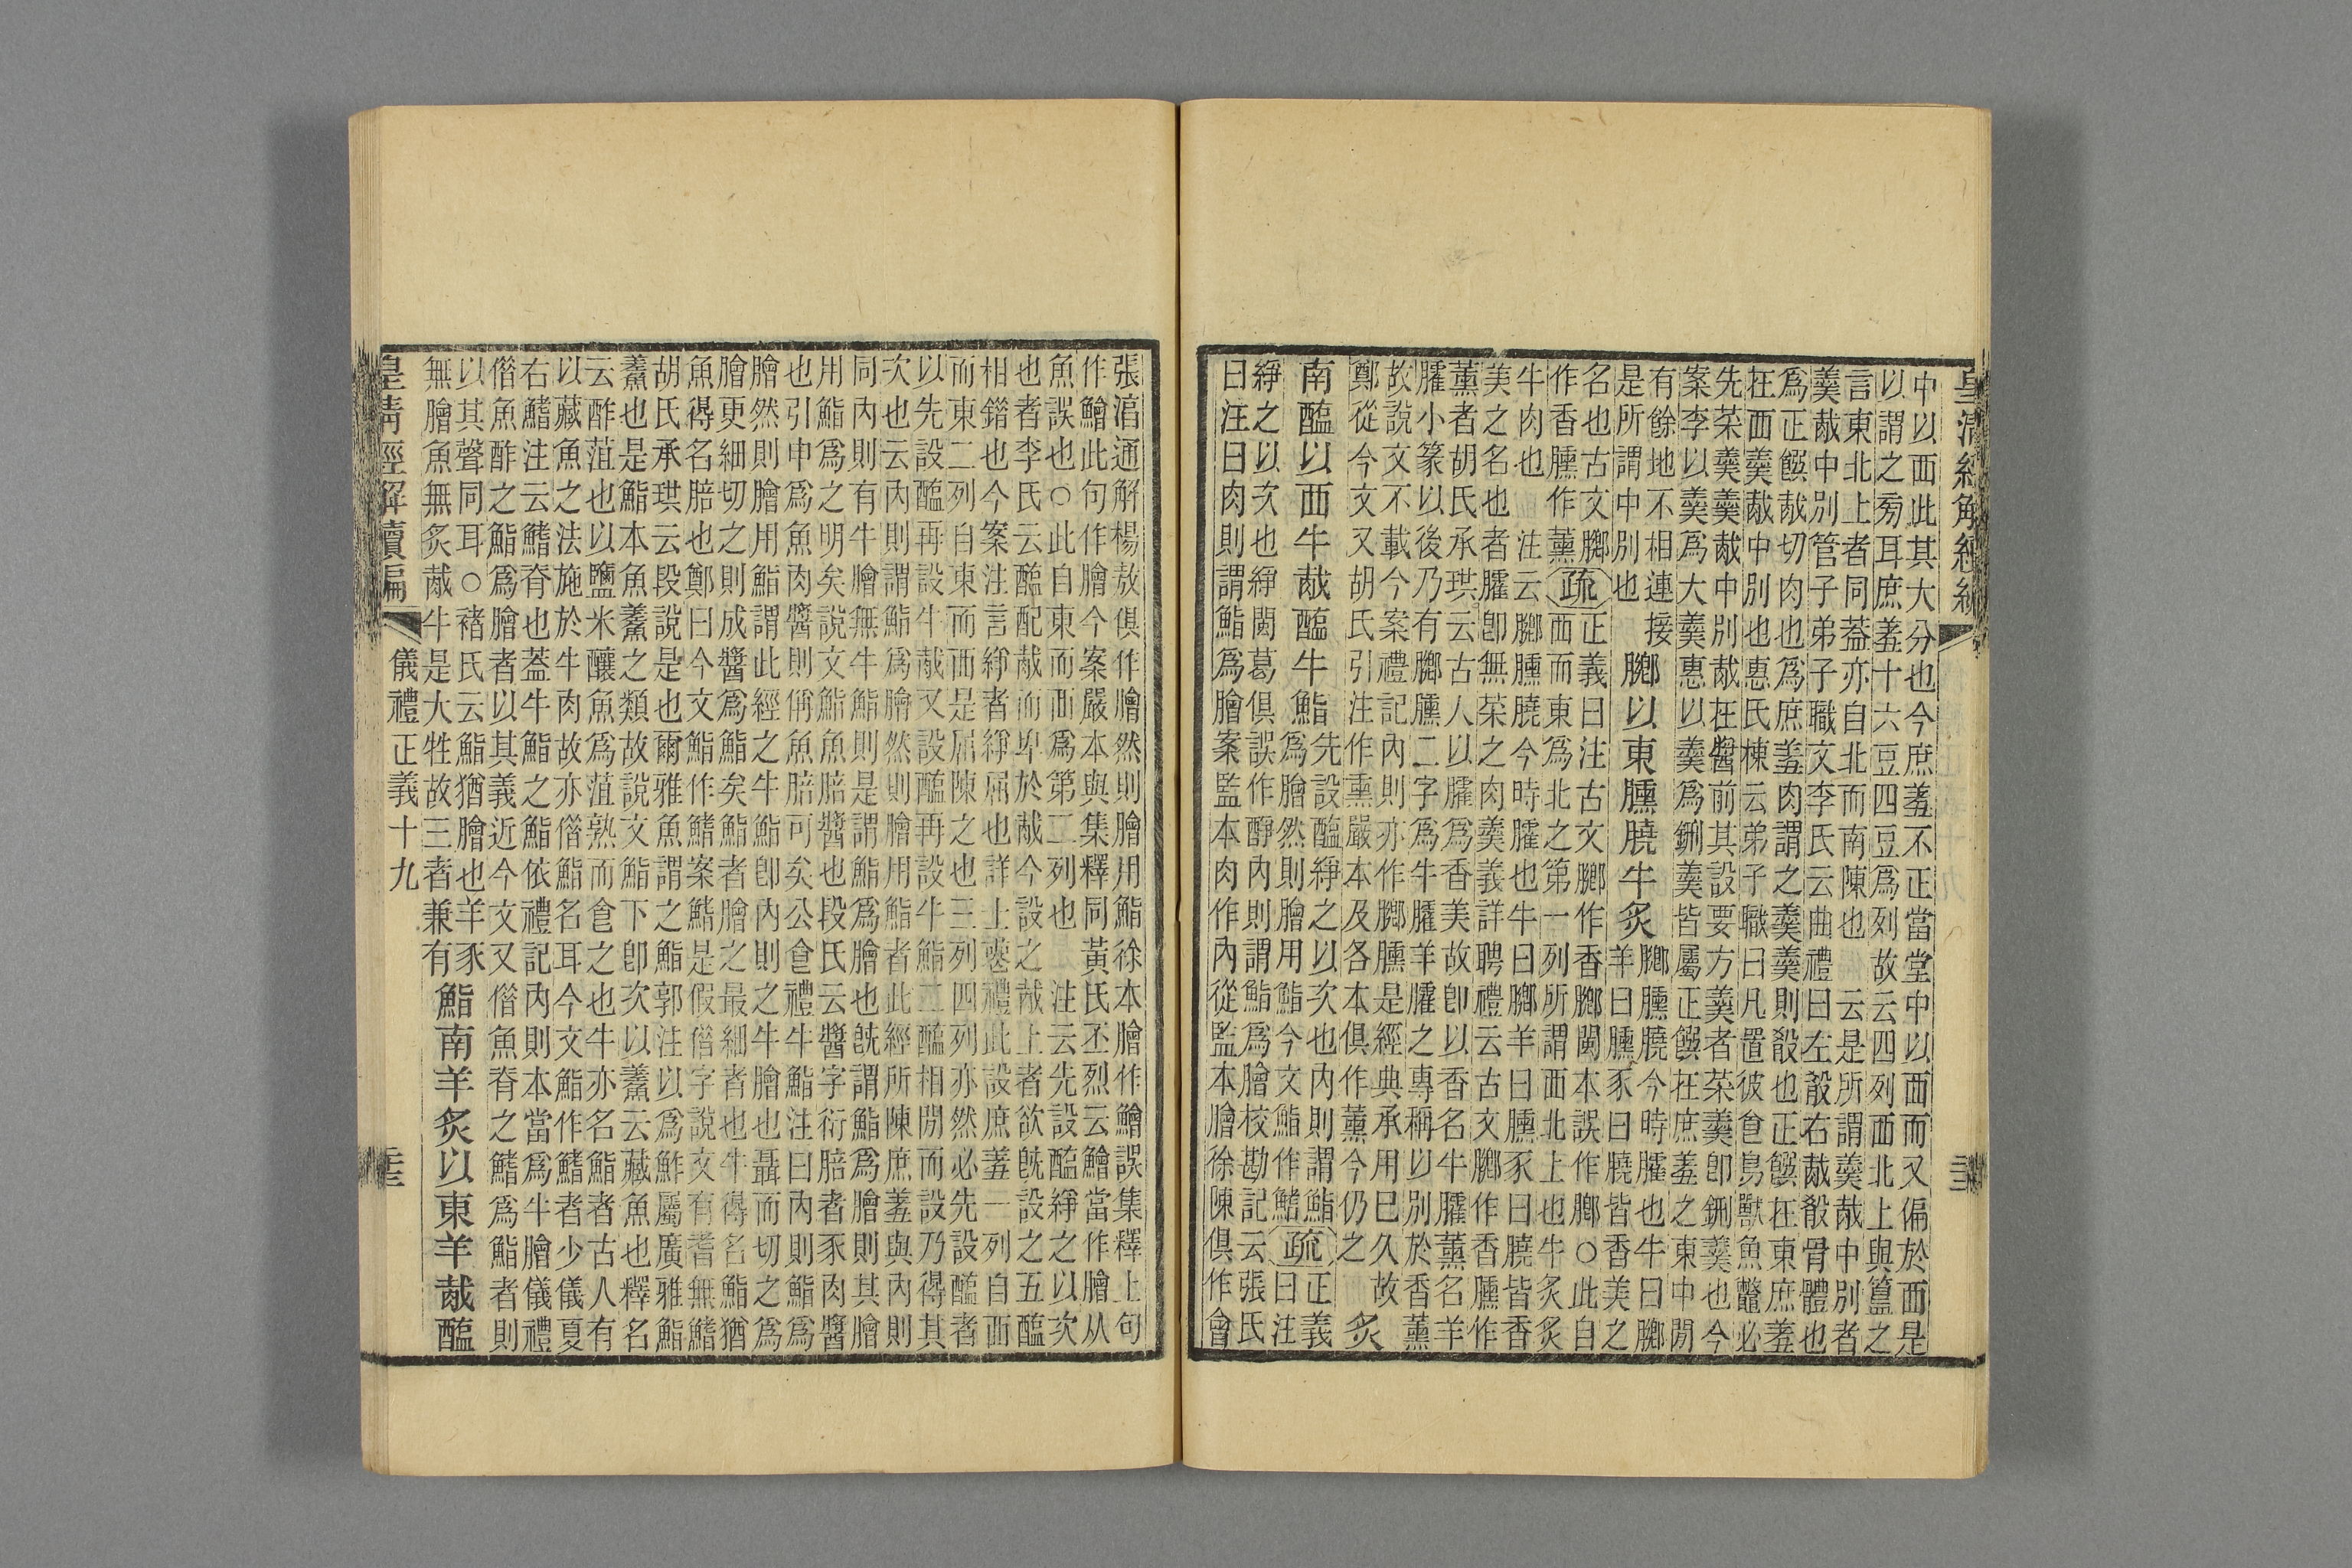 皇清經解經編
中以西此其大分也今庶羞不正當堂中以西而又偏於西是
以謂之旁耳庶羞十六豆四豆爲列故云四列西北上與簋之
言東北上者同葢亦自北而南陳也云是所謂羹胾中別者
羹胾中別管子弟子職文李氏云曲禮曰左殽右胾殽骨體也
爲正饌胾切肉也爲庶羞肉謂之羹羹則殽也正饌在東庶羞
在西羹胾中別也惠氏棟云弟子職曰凡置彼食鳥獸魚鼈必
先菜羹羹胾中別胾在醬前其設要方羹者菜羹卽鉶羹也今
案李以羹爲大羹惠以羹爲鉶羹皆屬正饌在庶羞之東中閒
有餘地不相連接
是所謂中別也
膷以東臐膮牛炙
膷臐膮今時臛也牛曰膷
羊曰臐豕曰膮皆香美之
名也古文膷
作香臐作薰
疏
正義曰注古文膷作香膷閩本誤作膷○此自
西而東爲北之第一列所謂西北上也牛炙炙
牛肉也 注云膷臐膮今時臛也牛曰膷羊曰臐豕曰膮皆香
美之名也者臛卽無菜之肉羹義詳聘禮云古文膷作香臐作
薰者胡氏承珙云古人以臛爲香美故卽以香名牛臛薰名羊
臛小篆以後乃有膷臐二字爲牛臛羊臛之專稱以別於香薰
故說文不載今案禮記內則亦作膷臐是經典承用巳久故
鄭從今文又胡氏引注作熏嚴本及各本俱作薰今仍之
炙
南醢以西牛胾醢牛鮨
先設醢綪之以次也內則謂鮨
爲膾然則膾用鮨今文鮨作鰭
疏
正義
曰注
綪之以次也綪閩葛俱誤作內則謂鮨爲膾校勘記云張氏
曰注曰肉則謂鮨爲膾案監本肉作內從監本膾徐陳俱作會
張淳通解楊敖俱作膾然則膾用鮨徐本膾作鱠誤集釋上句
作鱠此句作膾今案嚴本與集釋同黃氏丕烈云鱠當作膾从
魚誤也○此自東而西爲第二列也 注云先設醢綪之以次
也者李氏云醢配胾而卑於胾今設之胾上者欲旣設之五醢
相錯也今案注言綪者綪屈也詳士喪禮此設庶羞一列自西
而東二列自東而西是屈陳之也三列四列亦然必先設醢者
以先設醢再設牛胾又設醢再設牛鮨二醢相閒而設乃得其
次也云內則謂鮨爲膾然則膾用鮨者此經所陳庶羞與內則
同內則有牛膾無牛鮨則是謂鮨爲膾也旣謂鮨爲膾則其膾
用鮨爲之明矣說文鮨魚賠醬也段氏云醬字衍賠者豕肉醬
也引申爲魚肉醬則偁魚賠可矣公食禮牛鮨注曰內則鮨爲
膾然則膾用鮨謂此經之牛鮨卽內則之牛膾也聶而切之爲
膾更細切之則成醬爲鮨矣鮨者膾之最細者也牛得名鮨猶
魚得名賠也鄭曰今文鮨作鰭案鰭是假借字說文有耆無鰭
胡氏承珙云段說是也爾雅魚謂之鮨郭注以爲鮓屬廣雅鮨
鮺也是鮨本魚鮺之類故說文鮨下卽次以鮺云藏魚也釋名
云酢菹也以鹽米釀魚爲菹熟而食之也牛亦名鮨者古人有
以藏魚之法施於牛肉故亦借鮨名耳今文鮨作鰭者少儀夏
右鰭注云鰭脊也蓋牛鮨之鮨依禮記內則本當爲牛膾儀禮
借魚酢之鮨爲膾者以其義近今文又借魚脊之鰭爲鮨者則
以其聲同耳○褚氏云鮨猶膾也羊豕
無膾魚無炙胾牛是大牲故三者兼有
鮨南羊炙以東羊胾醢
皇清經解續編
儀禮正義十九